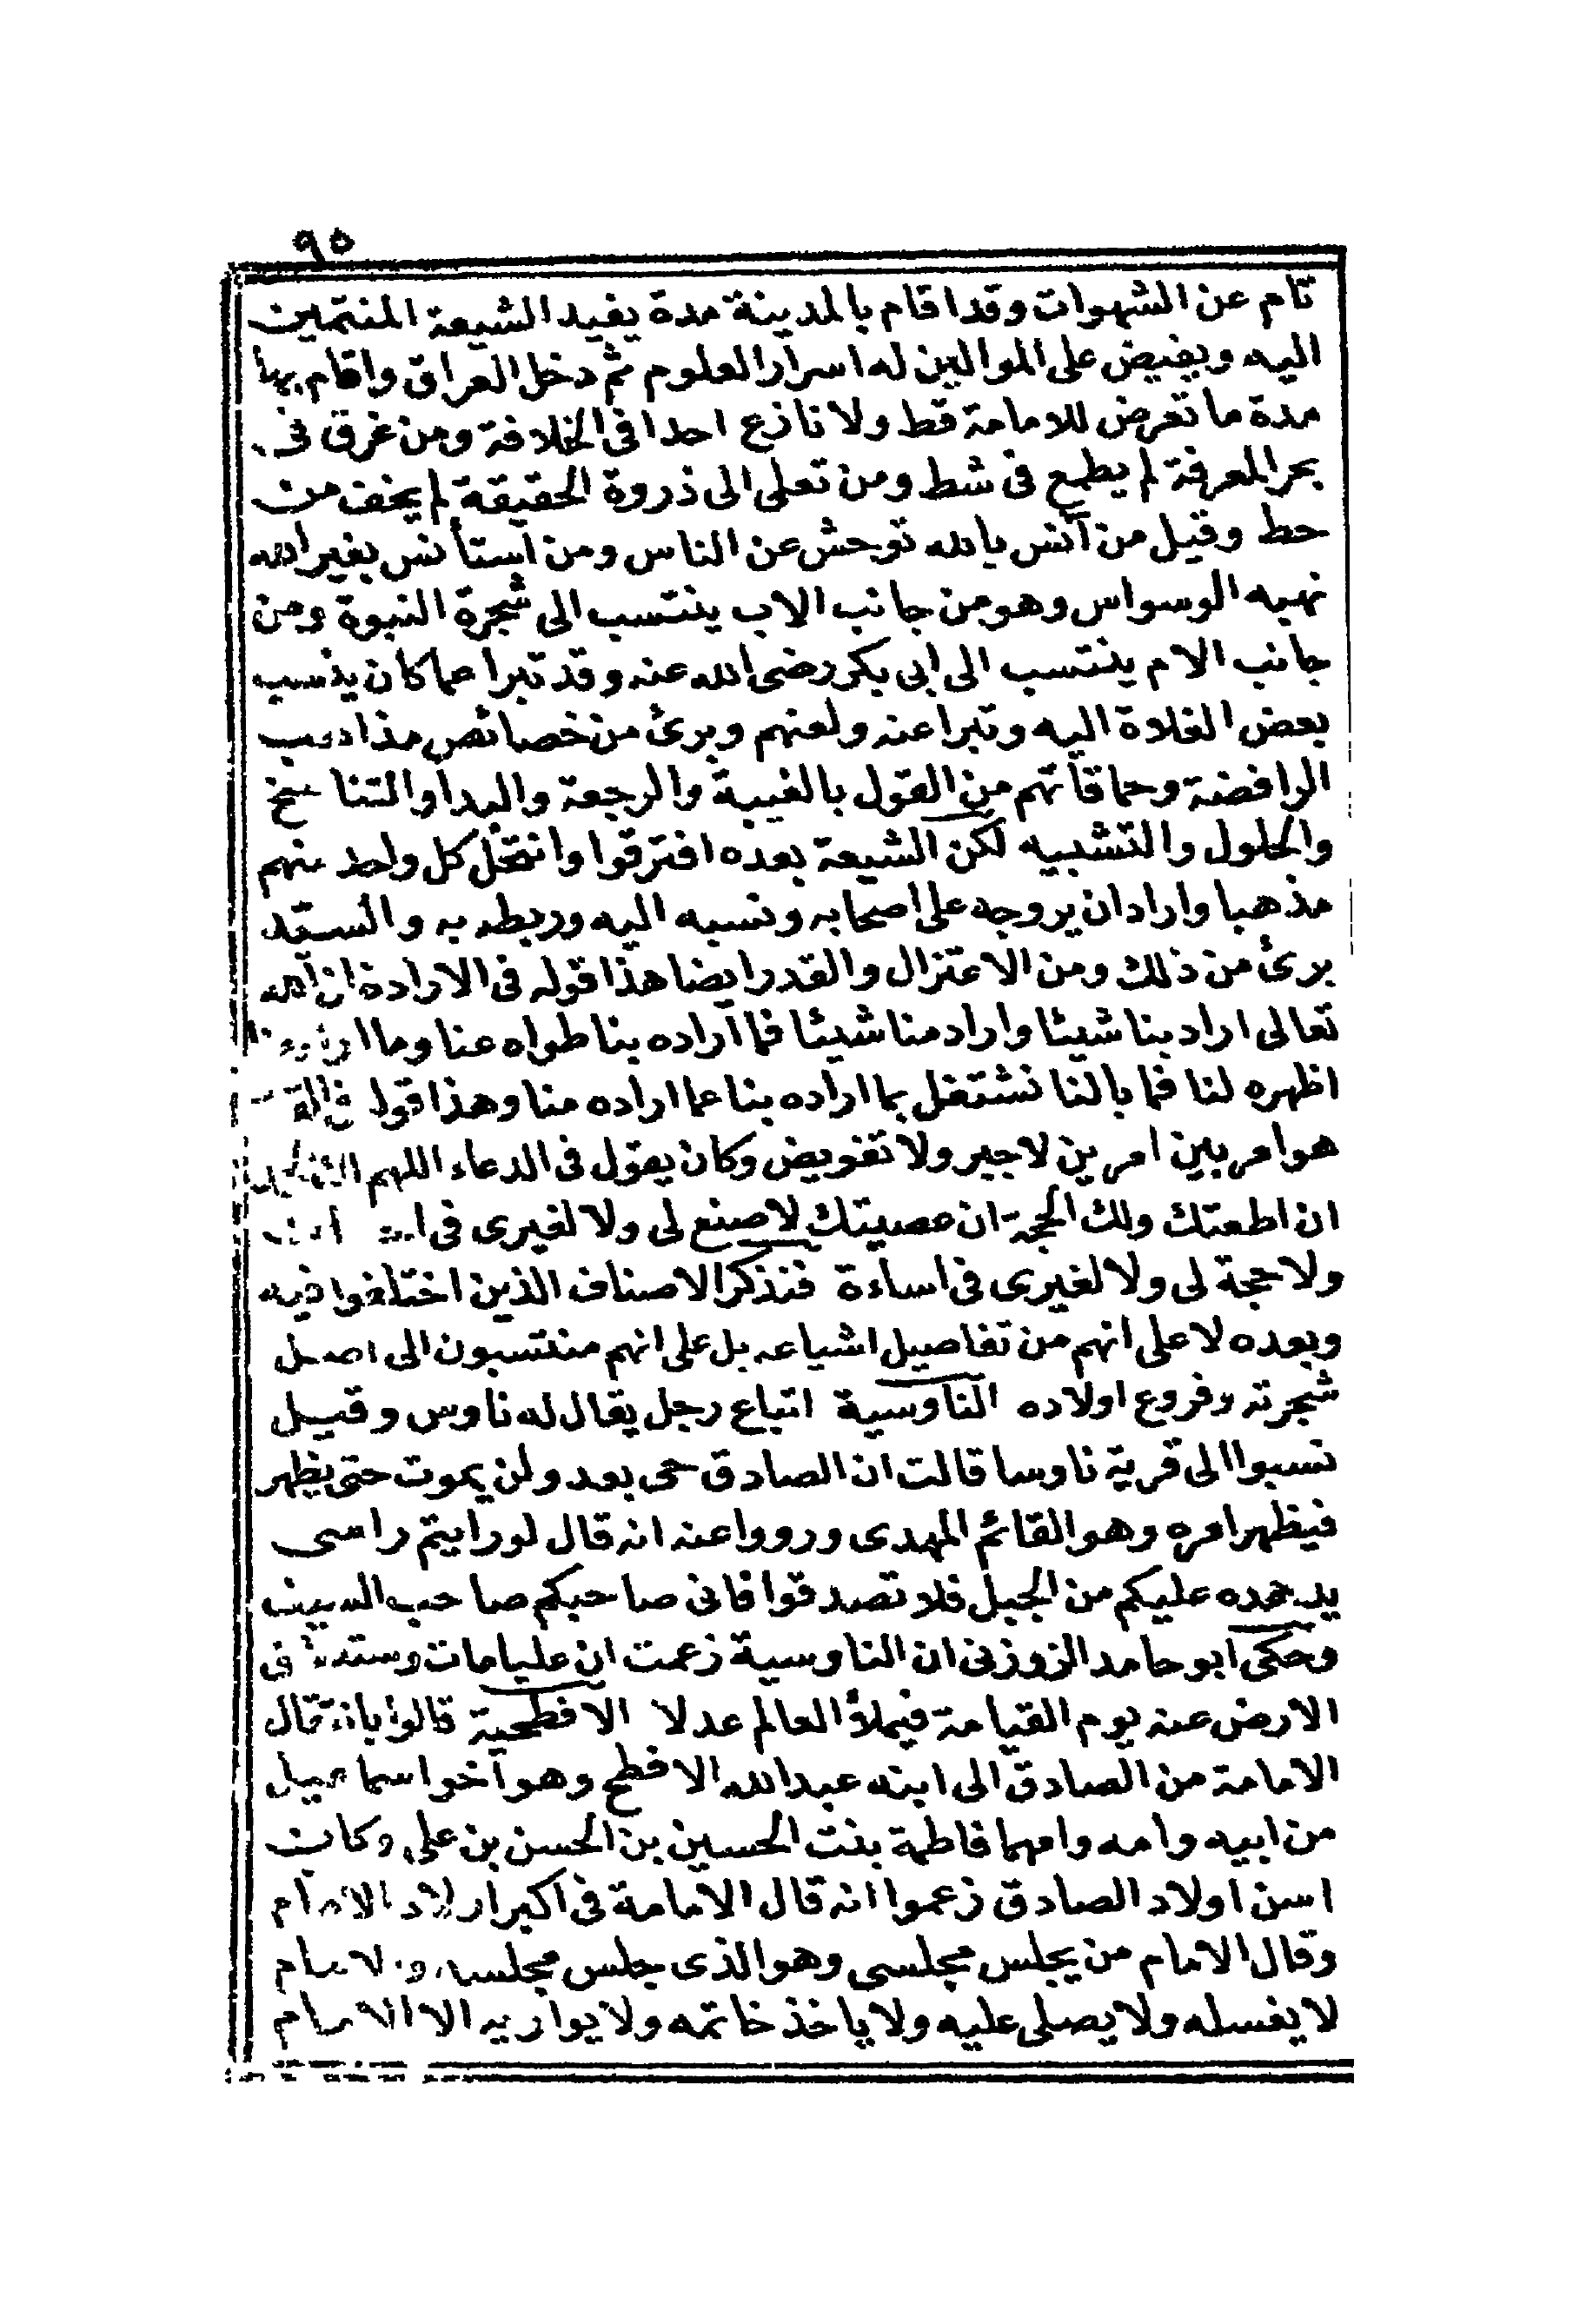 ٩٥
تام عن الشهوات وقد اقام بالمدينة مدة يفيد الشيعة المنتمين
اليه ويفيض على الموالين له اسرار العلوم ثم دخل العراق واقام بها
مدة ما تعرض للامامة قط ولا نازع احدا فى الخلافة ومن غرق فى
بحر المعرفة لم يطمع فى شط ومن تعلى الى ذروة الحقيقة لم يخف من
حط وقيل من آنس بالله توحش عن الناس ومن استأنس بغير الله
نهبه الوسواس وهو من جانب الاب ينتسب الى شجرة النبوة ومن
جانب الام ينتسب الى ابى بكر رضى الله عنه وقد تبرا عما كان ينسب
بعض الغلاة اليه وتبرا عنه ولعنهم وبرئ من خصائص مذاهب
الرافضة وحماقاتهم من القول بالغيبة والرجعة والبدا والتناسخ
والحلول والتشبيه لكن الشيعة بعده افترقوا وانتحل كل واحد منهم
مذهبا واراد ان يروجه على اصحابه ونسبه اليه وربطه به والسيد
برئ من ذلك ومن الاعتزال والقدر ايضا هذا قوله فى الارادة ان الله
تعالى اراد بنا شيئا واراد منا شيئا فما اراده بنا طواه عنا وما اراده منا
اظهره لنا فما بالنا نشتغل بما اراده بنا عما اراده منا وهذا قوله فى
هو امر بين امرين لا جبر ولا تفويض وكان يقول فى الدعاء اللهم
ان اطعتك ولك الحجة ان عصيتك لا صنع لى ولا لغيرى فى
ولا حجة لى ولا لغيرى فى اساءة فنذكر الاصناف الذين اختلفوا فيه
وبعده لا على انهم من تفاصيل اشياعه بل على انهم منتسبون الى اصل
شجرته وفروع اولاده الناوسية اتباع رجل يقال له ناوس وقيل
نسبوا الى قرية ناوسا قالت ان الصادق حى بعد ولن يموت حتى يظهر
فيظهر امره وهو القائم المهدى ورووا عنه انه قال لو رايتم راسى
يدهده عليكم من الجبل فلا تصدقوا فانى صاحبكم صاحب السيف
وحكى ابو حامد الزوزنى ان الناوسية زعمت ان عليا مات وستنشق
الارض عنه يوم القيامة فيملأ العالم عدلا الافطحية قالوا بانتقال
الامامة من الصادق الى ابنه عبد الله الافطح وهو اخو اسماعيل
من ابيه وامه وامهما فاطمة بنت الحسين بن الحسن بن على وكان
اسن اولاد الصادق زعموا انه قال الامامة فى اكبر اولاد الامام
وقال الامام من يجلس مجلسى وهو الذى جلس مجلسه والامام
لا يغسله ولا يصلى عليه ولا ياخذ خاتمه ولا يواريه الا الامام